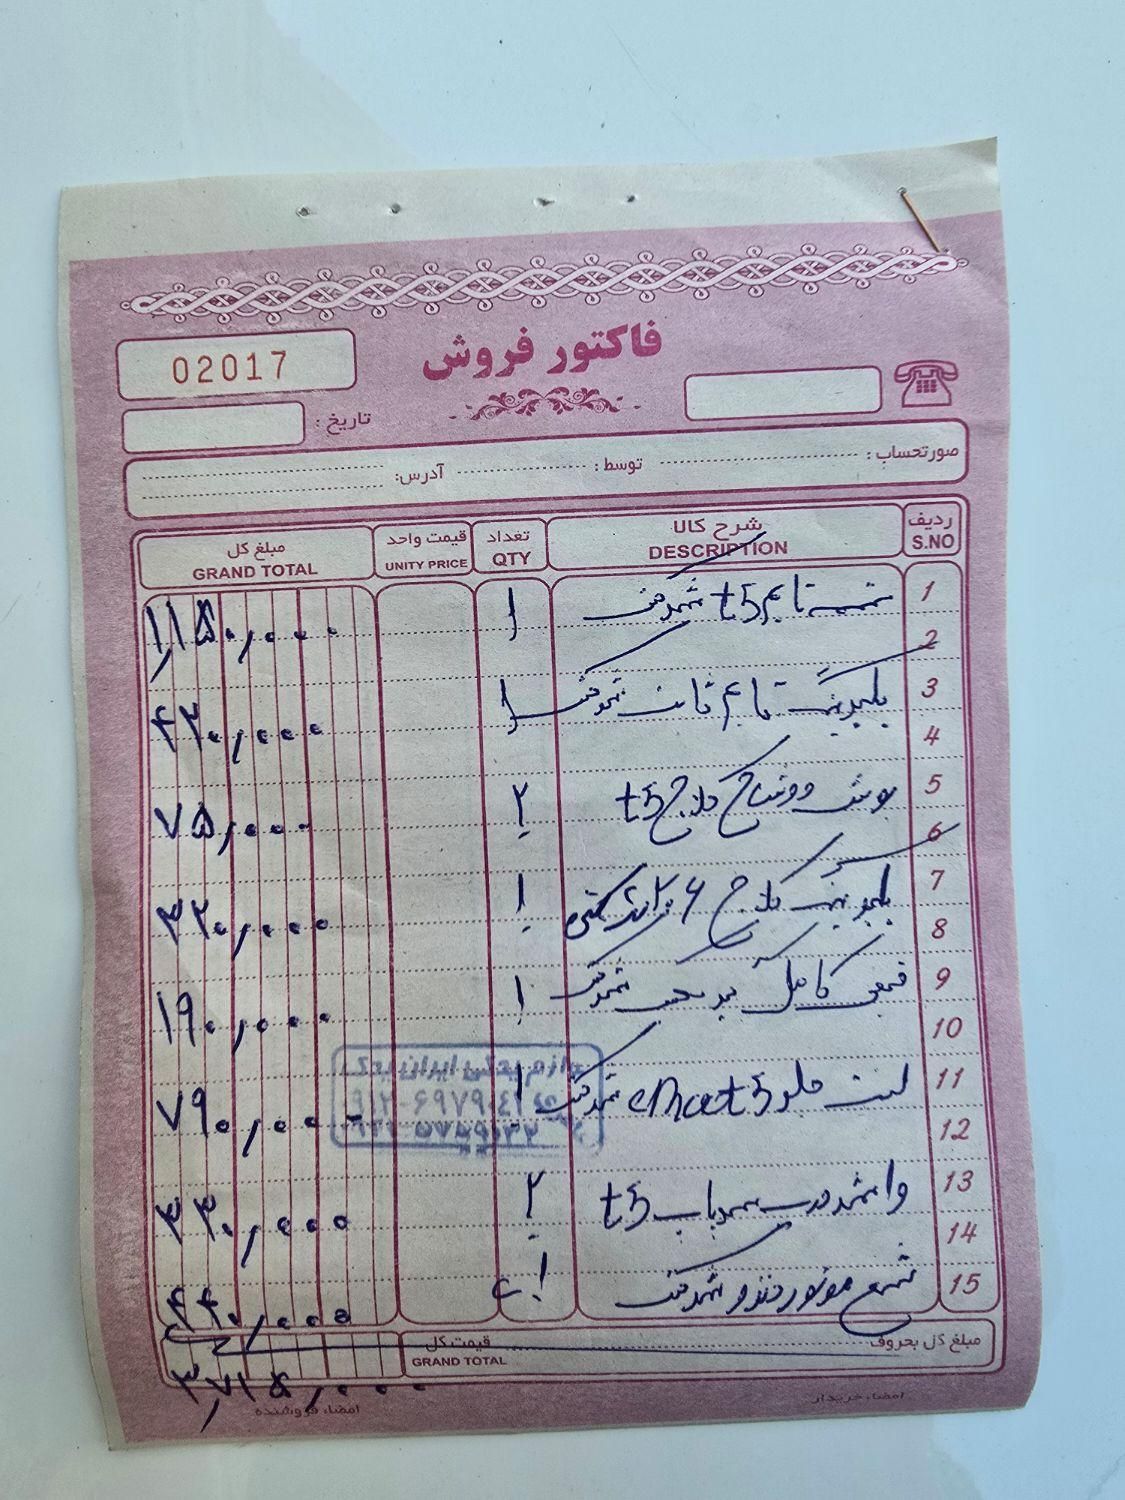 فاکتور فروش
02017
تاریخ :
صورتحساب : توسط : آدرس:
ردیف شرح کالا تعداد قیمت واحد مبلغ کل
S.NO DESCRIPTION QTY UNITY PRICE GRAND TOTAL
1 تسمه تایم t5 شرکتی ۱ ۱,۱۵۰,۰۰۰
2
3 بلبرینگ تایم ثابت شرکتی ۱ ۴۳۰,۰۰۰
4
5 بوش دوشاخ کلاج t5 ۲ ۷۵,۰۰۰
6
7 بلبرینگ کلاج ۲۰۶ ۱ ۳۲۰,۰۰۰
8
9 قیفی کامل گیربکس شرکتی ۱ ۱۹۰,۰۰۰
10
11 لنت جلو t5 شرکتی ۱ ۷۹۰,۰۰۰
12
13 واشر درب سوپاپ t5 ۲ ۳۳۰,۰۰۰
14
15 شمع موتور شرکتی ۱ ۴۴۰,۰۰۰
مبلغ کل بحروف قیمت کل
GRAND TOTAL
۳,۷۱۵,۰۰۰
امضاء خریدار امضاء فروشنده